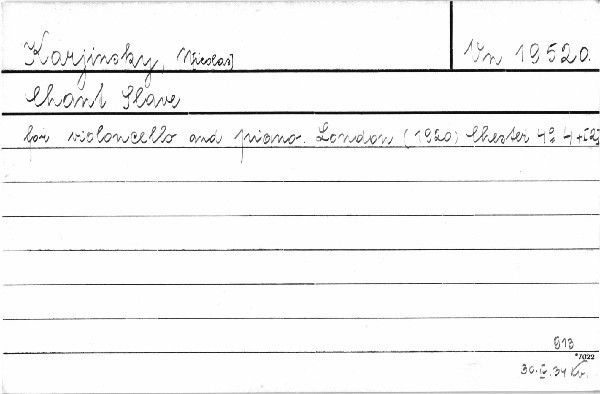 Karjinsky, [Nicolas]
Vn 19520.
Chant Slave
for violoncello and piano. London (1920) Chester 4° 4+[2]
913
*1022
30.IV.34 Kr.